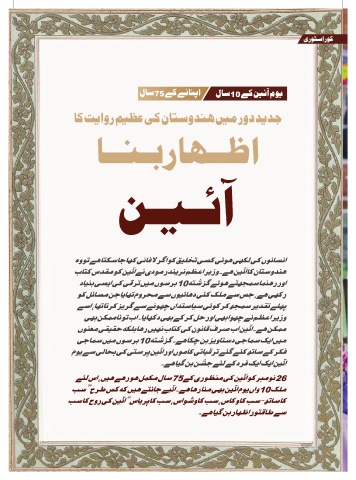 کور اسٹوری
یوم آئین کے 10 سال / اپنانے کے 75 سال
جدید دور میں ہندوستان کی عظیم روایت کا
اظہار بنا
آئین
انسانوں کی لکھی ہوئی کسی تخلیق کو اگر لافانی کہا جا سکتا ہے تو وہ
ہندوستان کا آئین ہے۔ وزیر اعظم نریندر مودی نے آئین کو مقدس کتاب
اور رہنما سمجھتے ہوئے گزشتہ 10 برسوں میں ترقی کی ایسی بنیاد
رکھی ہے، جس سے ملک کئی دھائیوں سے محروم تھا یا جن مسائل کو
پہلے تقدیر سمجھ کر کوئی سیاستداں چھونے سے گریز کرتا تھا، اسے
وزیر اعظم نے چھوا بھی اور حل کر کے بھی دکھایا۔ اب تو ناممکن بھی
ممکن ہے۔ آئین اب صرف قانون کی کتاب نہیں رہا بلکہ حقیقی معنوں
میں ایک سماجی دستاویز بن چکا ہے۔ گزشتہ 10 برسوں میں سماجی
فکر کے ساتھ کئے گئے ترقیاتی کاموں اور آئین پرستی کی بحالی سے یوم
آئین ایک ایک فرد کے لئے جشن بن گیا ہے۔
26 نومبر کو آئین کی منظوری کے 75 سال مکمل ہو رہے ہیں، اس لئے
ملک 10 واں یوم آئین بھی منا رہا ہے۔ آئیے جانتے ہیں کہ کس طرح ''سب
کا ساتھ-سب کا وکاس، سب کا وشواس، سب کا پریاس'' آئین کی روح کا سب
سے طاقتور اظہار بن گیا ہے۔